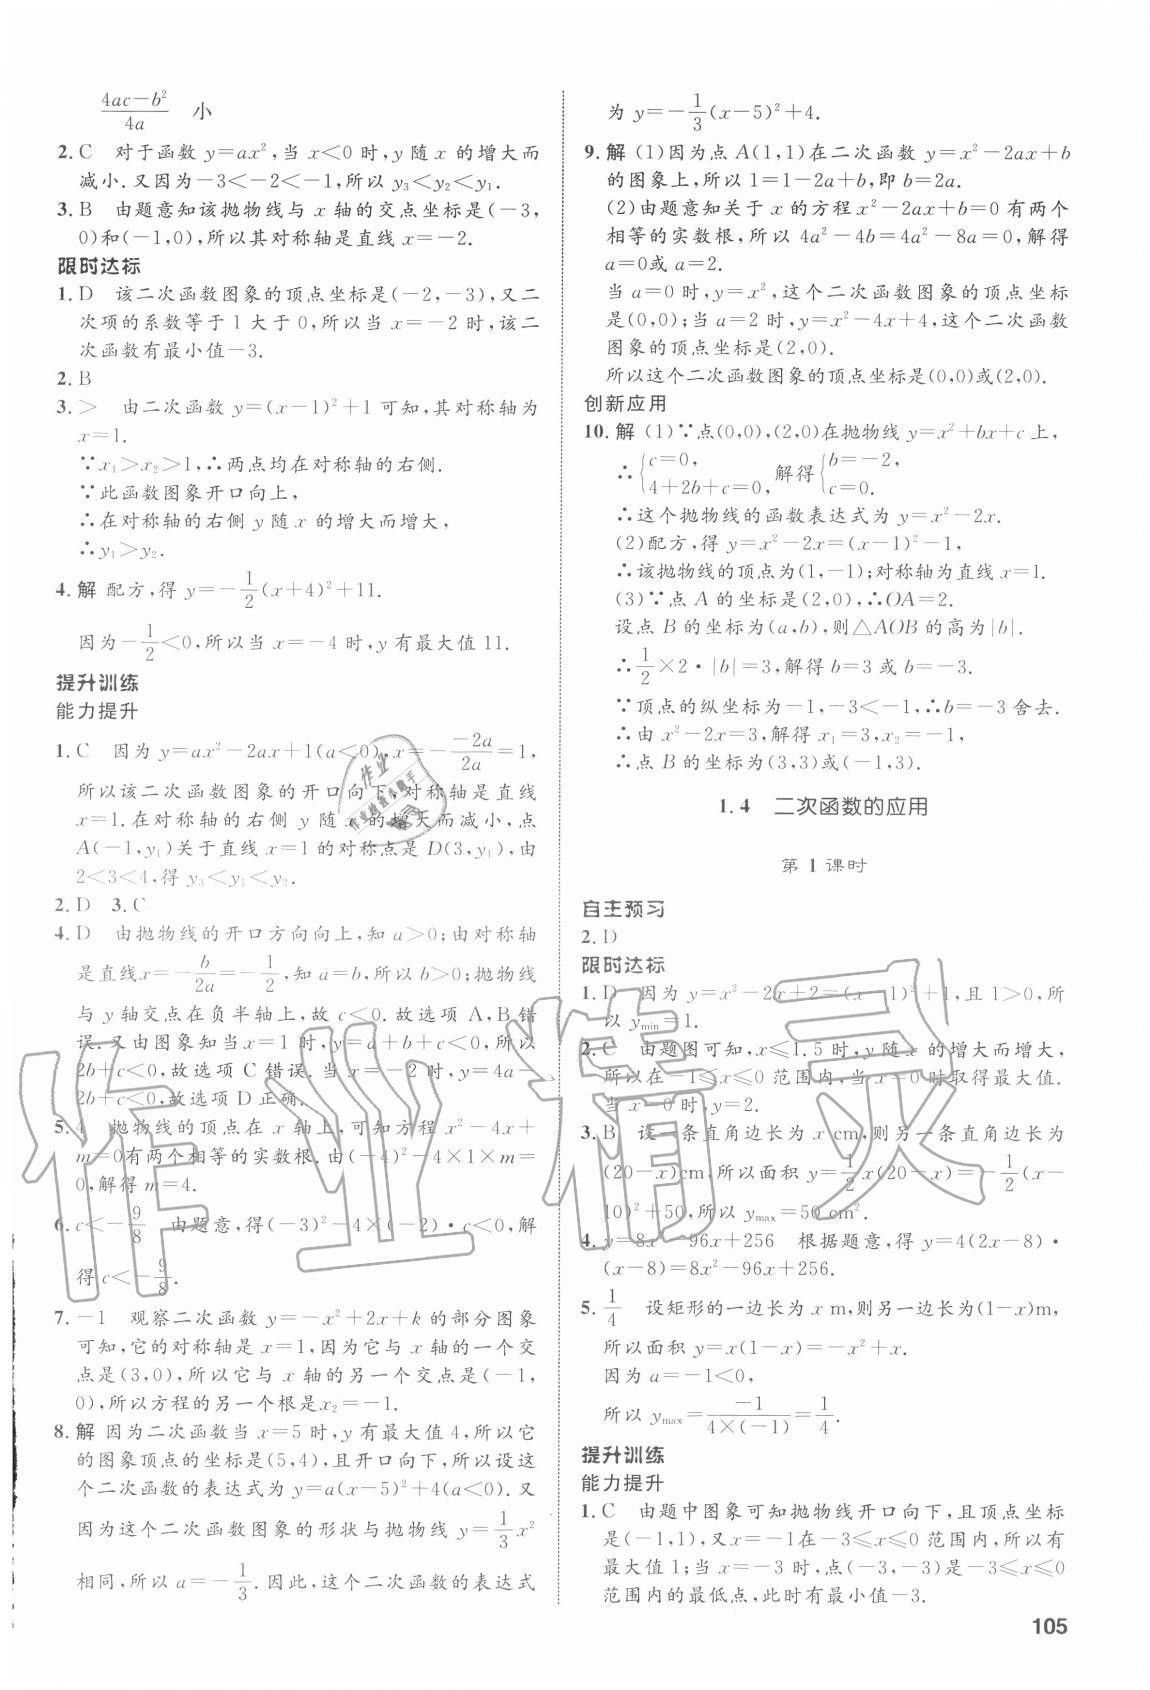 (4ac-b²)/(4a)　小
2. C　对于函数 y=ax²,当 x<0 时,y 随 x 的增大而
减小.又因为-3<-2<-1,所以 y₃<y₂<y₁.
3. B　由题意知该抛物线与 x 轴的交点坐标是(-3,
0)和(-1,0),所以其对称轴是直线 x=-2.
限时达标
1. D　该二次函数图象的顶点坐标是(-2,-3),又二
次项的系数等于 1 大于 0,所以当 x=-2 时,该二
次函数有最小值-3.
2. B
3. >　由二次函数 y=(x-1)²+1 可知,其对称轴为
x=1.
∵x₁>x₂>1,∴两点均在对称轴的右侧.
∵此函数图象开口向上,
∴在对称轴的右侧 y 随 x 的增大而增大,
∴y₁>y₂.
4. 解 配方,得 y=-1/2(x+4)²+11.
因为-1/2<0,所以当 x=-4 时,y 有最大值 11.
提升训练
能力提升
1. C　因为 y=ax²-2ax+1(a<0),x=-(-2a)/(2a)=1,
所以该二次函数图象的开口向下,对称轴是直线
x=1.在对称轴的右侧 y 随 x 的增大而减小,点
A(-1,y₁)关于直线 x=1 的对称点是 D(3,y₁),由
2<3<4,得 y₃<y₁<y₂.
2. D　3. C
4. D　由抛物线的开口方向向上,知 a>0;由对称轴
是直线 x=-b/(2a)=-1/2,知 a=b,所以 b>0;抛物线
与 y 轴交点在负半轴上,故 c<0.故选项 A,B 错
误.又由图象知当 x=1 时,y=a+b+c<0,所以
2b+c<0,故选项 C 错误.当 x=-2 时,y=4a-
2b+c<0,故选项 D 正确.
5. 4　抛物线的顶点在 x 轴上,可知方程 x²-4x+
m=0有两个相等的实数根.由(-4)²-4×1×m=
0,解得 m=4.
6. c<-9/8　由题意,得(-3)²-4×(-2)·c<0,解
得 c<-9/8.
7. -1　观察二次函数 y=-x²+2x+k 的部分图象
可知,它的对称轴是 x=1,因为它与 x 轴的一个交
点是(3,0),所以它与 x 轴的另一个交点是(-1,
0),所以方程的另一个根是x₂=-1.
8. 解 因为二次函数当 x=5 时,y 有最大值 4,所以它
的图象顶点的坐标是(5,4),且开口向下,所以设这
个二次函数的表达式为 y=a(x-5)²+4(a<0).又
因为这个二次函数图象的形状与抛物线 y=1/3x²
相同,所以 a=-1/3.因此,这个二次函数的表达式
为 y=-1/3(x-5)²+4.
9. 解 (1)因为点 A(1,1)在二次函数 y=x²-2ax+b
的图象上,所以 1=1-2a+b,即 b=2a.
(2)由题意知关于 x 的方程x²-2ax+b=0 有两个
相等的实数根,所以 4a²-4b=4a²-8a=0,解得
a=0或 a=2.
当 a=0 时,y=x²,这个二次函数图象的顶点坐标
是(0,0);当 a=2 时,y=x²-4x+4,这个二次函数
图象的顶点坐标是(2,0).
所以这个二次函数图象的顶点坐标是(0,0)或(2,0).
创新应用
10. 解 (1)∵点(0,0),(2,0)在抛物线 y=x²+bx+c 上,
∴{c=0, 4+2b+c=0, 解得{b=-2, c=0.
∴这个抛物线的函数表达式为 y=x²-2x.
(2)配方,得 y=x²-2x=(x-1)²-1,
∴该抛物线的顶点为(1,-1);对称轴为直线 x=1.
(3)∵点 A 的坐标是(2,0),∴OA=2.
设点 B 的坐标为(a,b),则△AOB 的高为|b|.
∴1/2×2·|b|=3,解得 b=3 或 b=-3.
∵顶点的纵坐标为-1,-3<-1,∴b=-3 舍去.
∴由 x²-2x=3,解得 x₁=3,x₂=-1,
∴点 B 的坐标为(3,3)或(-1,3).
1.4　二次函数的应用
第 1 课时
自主预习
2. D
限时达标
1. D　因为 y=x²-2x+2=(x-1)²+1,且 1>0,所
以 yₘᵢₙ=1.
2. C　由题图可知,x≤1.5 时,y 随 x 的增大而增大,
所以在-1≤x≤0 范围内,当 x=0 时取得最大值.
当 x=0 时,y=2.
3. B　设一条直角边长为 x cm,则另一条直角边长为
(20-x)cm,所以面积 y=1/2x(20-x)=-1/2(x-
10)²+50,所以 yₘₐₓ=50 cm².
4. y=8x²-96x+256　根据题意,得 y=4(2x-8)·
(x-8)=8x²-96x+256.
5. 1/4　设矩形的一边长为 x m,则另一边长为(1-x)m,
所以面积 y=x(1-x)=-x²+x.
因为 a=-1<0,
所以 yₘₐₓ=(-1)/(4×(-1))=1/4.
提升训练
能力提升
1. C　由题中图象可知抛物线开口向下,且顶点坐标
是(-1,1),又 x=-1在-3≤x≤0 范围内,所以有
最大值 1;当 x=-3 时,点(-3,-3)是-3≤x≤0
范围内的最低点,此时有最小值-3.
105
作业精灵
作业
作业检查小助手